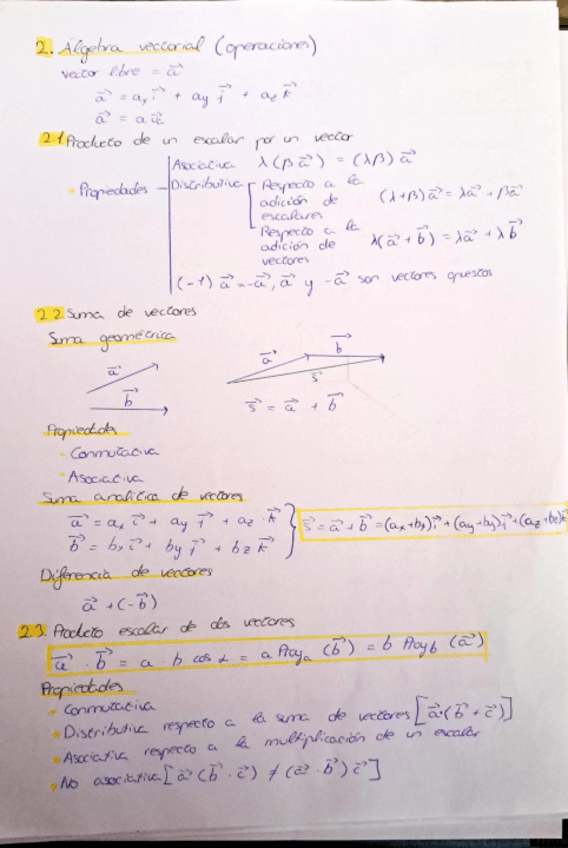 2. Álgebra vectorial (operaciones)
vector libre = a⃗
a⃗ = aₓ i⃗ + ay j⃗ + az k⃗
a⃗ = a u⃗
2.1 Producto de un escalar por un vector
• Propiedades
Asociativa λ(βa⃗) = (λβ)a⃗
Distributiva
Respecto a la adición de escalares (λ+β)a⃗ = λa⃗ + βa⃗
Respecto a la adición de vectores λ(a⃗ + b⃗) = λa⃗ + λb⃗
(-1) a⃗ = -a⃗, a⃗ y -a⃗ son vectores opuestos
2.2 Suma de vectores
Suma geométrica
a⃗
b⃗
a⃗
b⃗
s⃗
s⃗ = a⃗ + b⃗
Propiedades
• Conmutativa
• Asociativa
Suma analítica de vectores
a⃗ = aₓ i⃗ + ay j⃗ + az · k⃗
b⃗ = bₓ i⃗ + by j⃗ + bz k⃗
s⃗ = a⃗ + b⃗ = (ax+bx)i⃗ + (ay+by)j⃗ + (az+bz)k⃗
Diferencia de vectores
a⃗ + (-b⃗)
2.3. Producto escalar de dos vectores
a⃗ · b⃗ = a · b cos α = a Proyₐ (b⃗) = b Proy b (a⃗)
Propiedades
• Conmutativa
• Distributiva respecto a la suma de vectores [a⃗·(b⃗ + c⃗)]
• Asociativa respecto a la multiplicación de un escalar
• No asociativa [a⃗ (b⃗ · c⃗) ≠ (a⃗ · b⃗) c⃗]